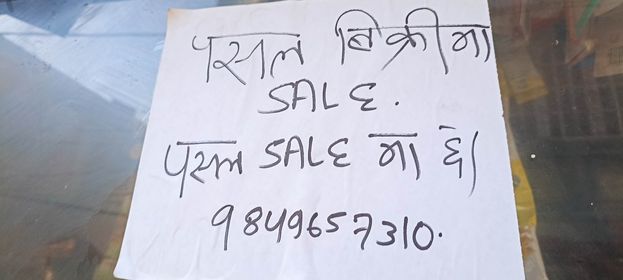 पसल बिक्रीमा
SALE.
पसल SALE मा छे।
9849657310.